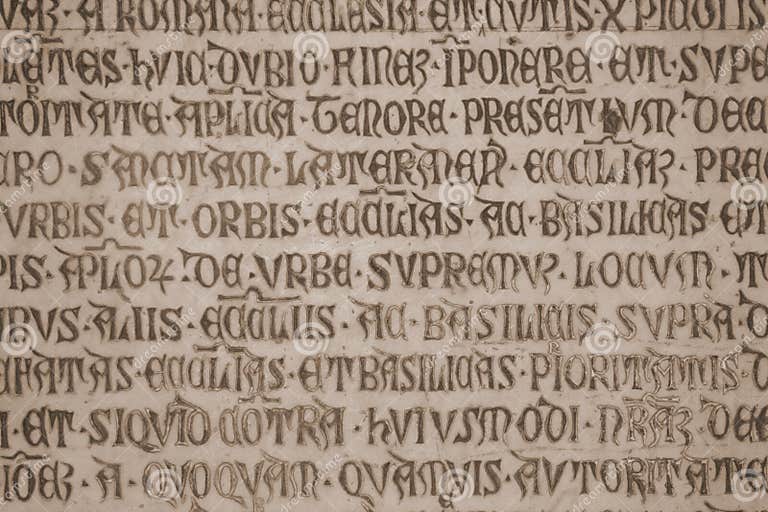 A · ROMANA · ECCLESIA · ET · CVTIS ·
HVIC · DVBIO · FINEꝫ · IPONERE · ET · SVPE
TORITATE · APLICA · TENORE · PRESETIVM · DEC
SACTAM · LATERANEN · ECCLIAꝫ · PRE
VRBIS · ET · ORBIS · ECCLIAS · AC · BASILICAS · ET
PIS · APLOꝝ · DE · VRBE · SVPREMVꝫ · LOCVM · T
ALIIS · ECCLIIS · AC · BASILICIS · SVPRA · D
ECCLIAS · ET BASILICAS · PIORITATIS · D
I · ET · SIQVID COTRA · HVIVSMODI · NRAꝫ · DE
A · QVOQVAM · QVAMVIS · AVTORITATE